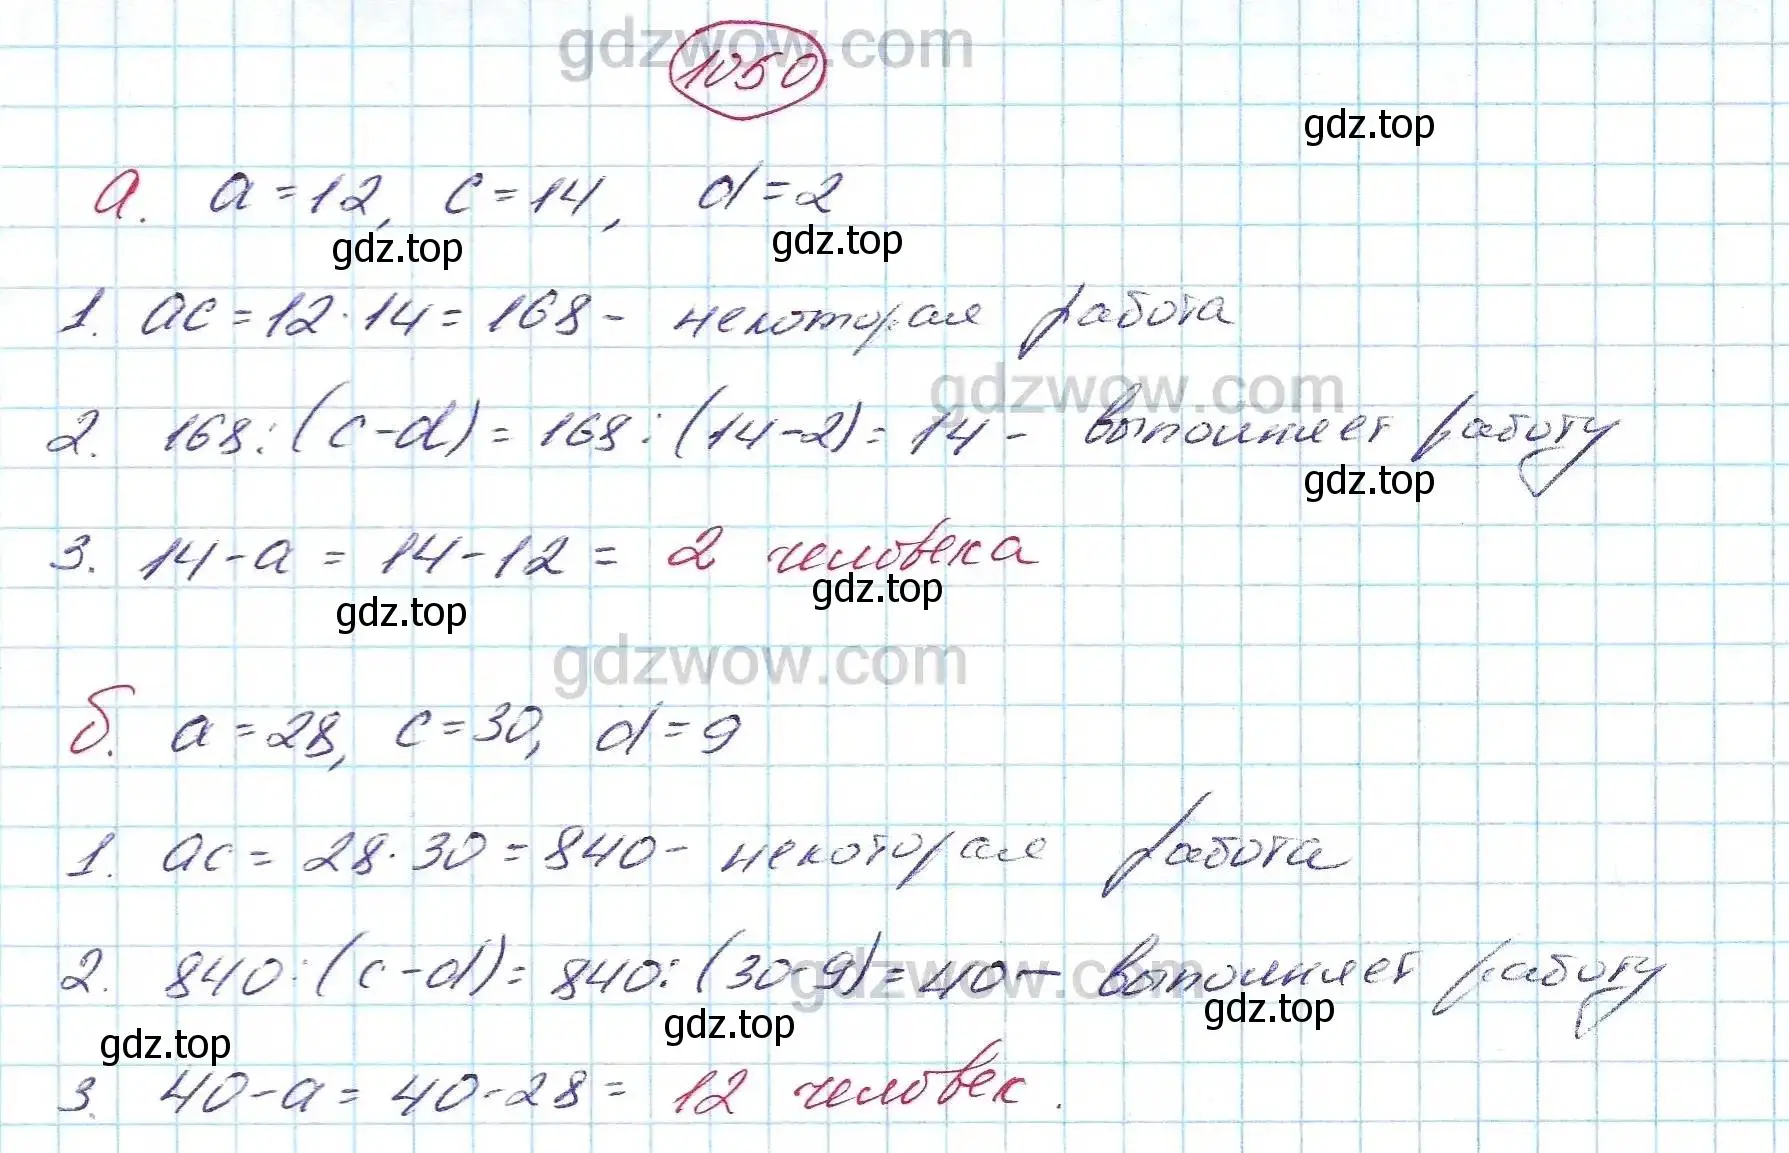 gdzwow.com
1050
gdz.top
а. a = 12, c = 14, d = 2
gdz.top gdz.top
1. ac = 12 · 14 = 168 - некоторая работа
gdzwow.com
2. 168 : (c - d) = 168 : (14 - 2) = 14 - выполняет работу
gdz.top
3. 14 - a = 14 - 12 = 2 человека
gdz.top gdz.top
gdzwow.com
б. a = 28, c = 30, d = 9
1. ac = 28 · 30 = 840 - некоторая работа
2. 840 : (c - d) = 840 : (30 - 9) = 40 - выполняет работу
gdzwow.com
gdz.top gdz.top gdz.top
3. 40 - a = 40 - 28 = 12 человек.